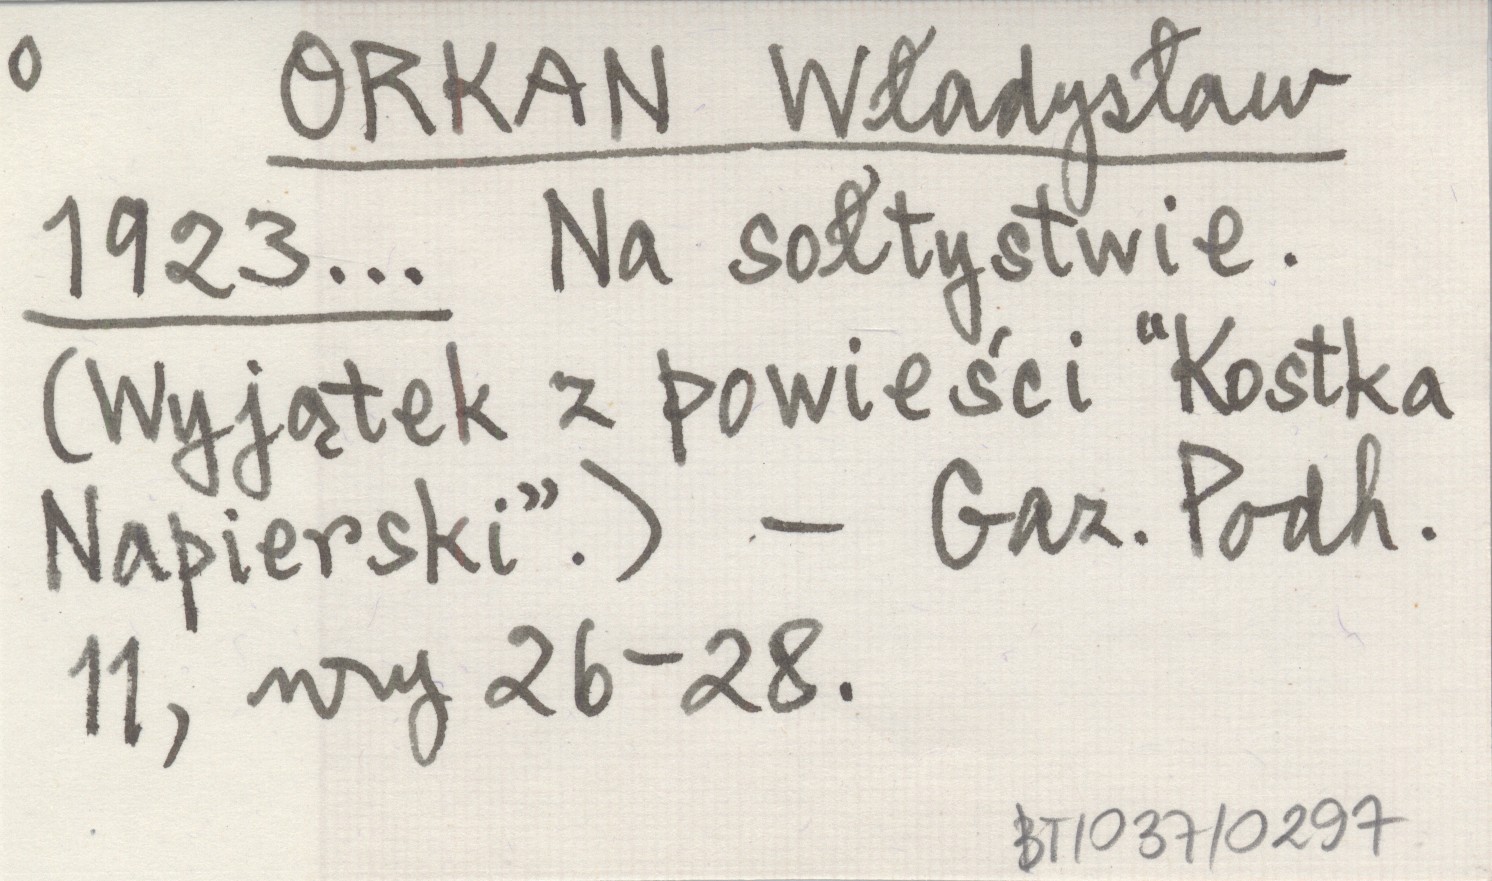 0 ORKAN Władysław
1923... Na sołtystwie.
(Wyjątek z powieści "Kostka
Napierski".) — Gaz. Podh.
11, nry 26-28.
BT/037/0297